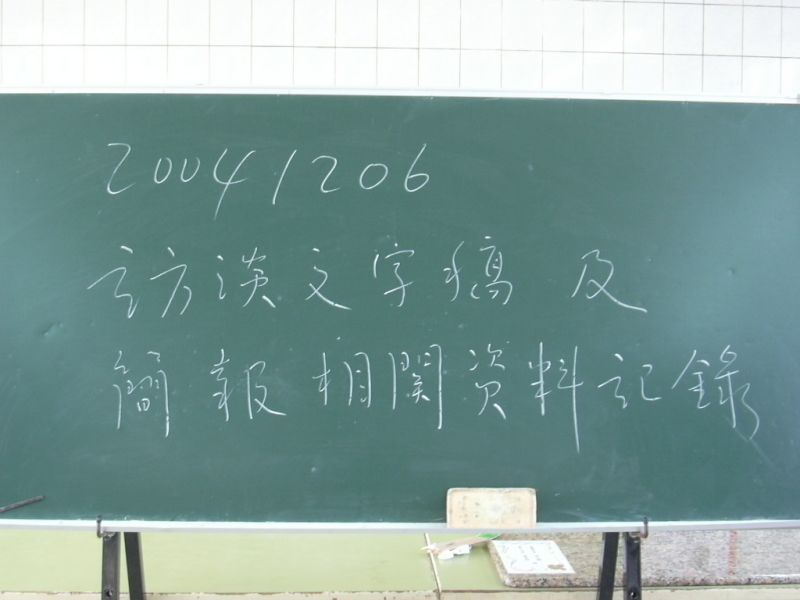 20041206
訪談文字稿及
簡報相關資料記錄